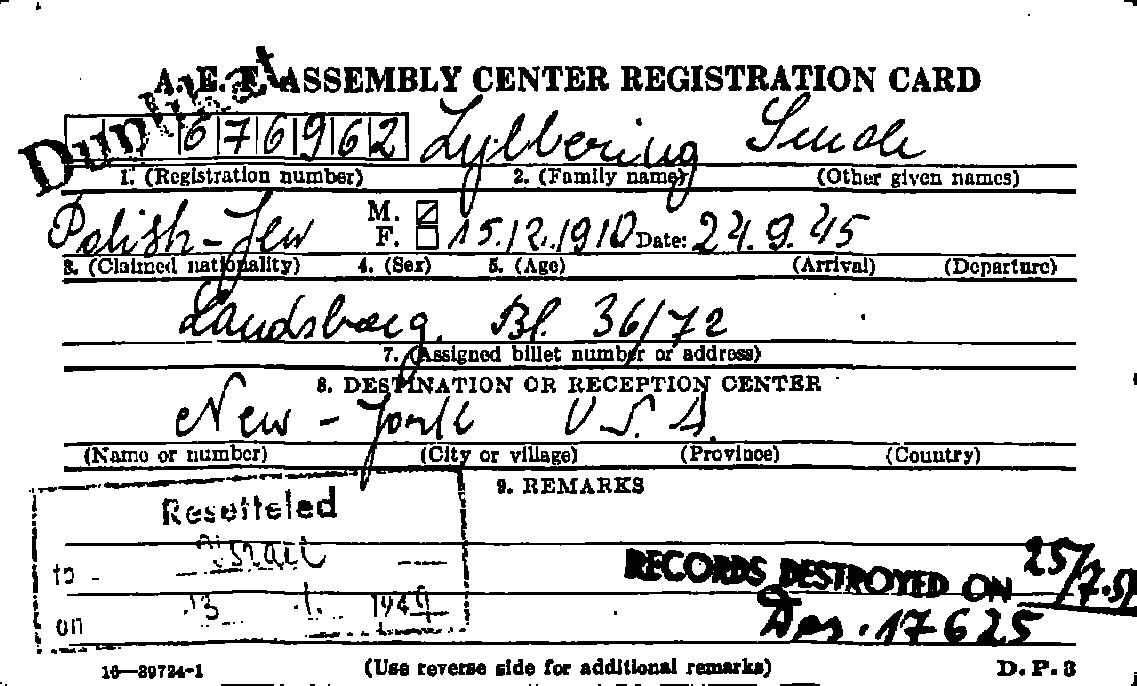 A. E. F. ASSEMBLY CENTER REGISTRATION CARD
676962 Zylbering
1. (Registration number) 2. (Family name) (Other given names)
Polish-Jew M. F. 15.12.1910 Date: 24.9.45
3. (Claimed nationality) 4. (Sex) 5. (Age) (Arrival) (Departure)
Landsberg. Bl. 36/72
7. (Assigned billet number or address)
8. DESTINATION OR RECEPTION CENTER
New-York U.S.A.
(Name or number) (City or village) (Province) (Country)
9. REMARKS
Resetteled
to - Israel
on 13 1. 1949
RECORDS DESTROYED ON 25/7.51
17625
16—39724-1 (Use reverse side for additional remarks) D. P. 3